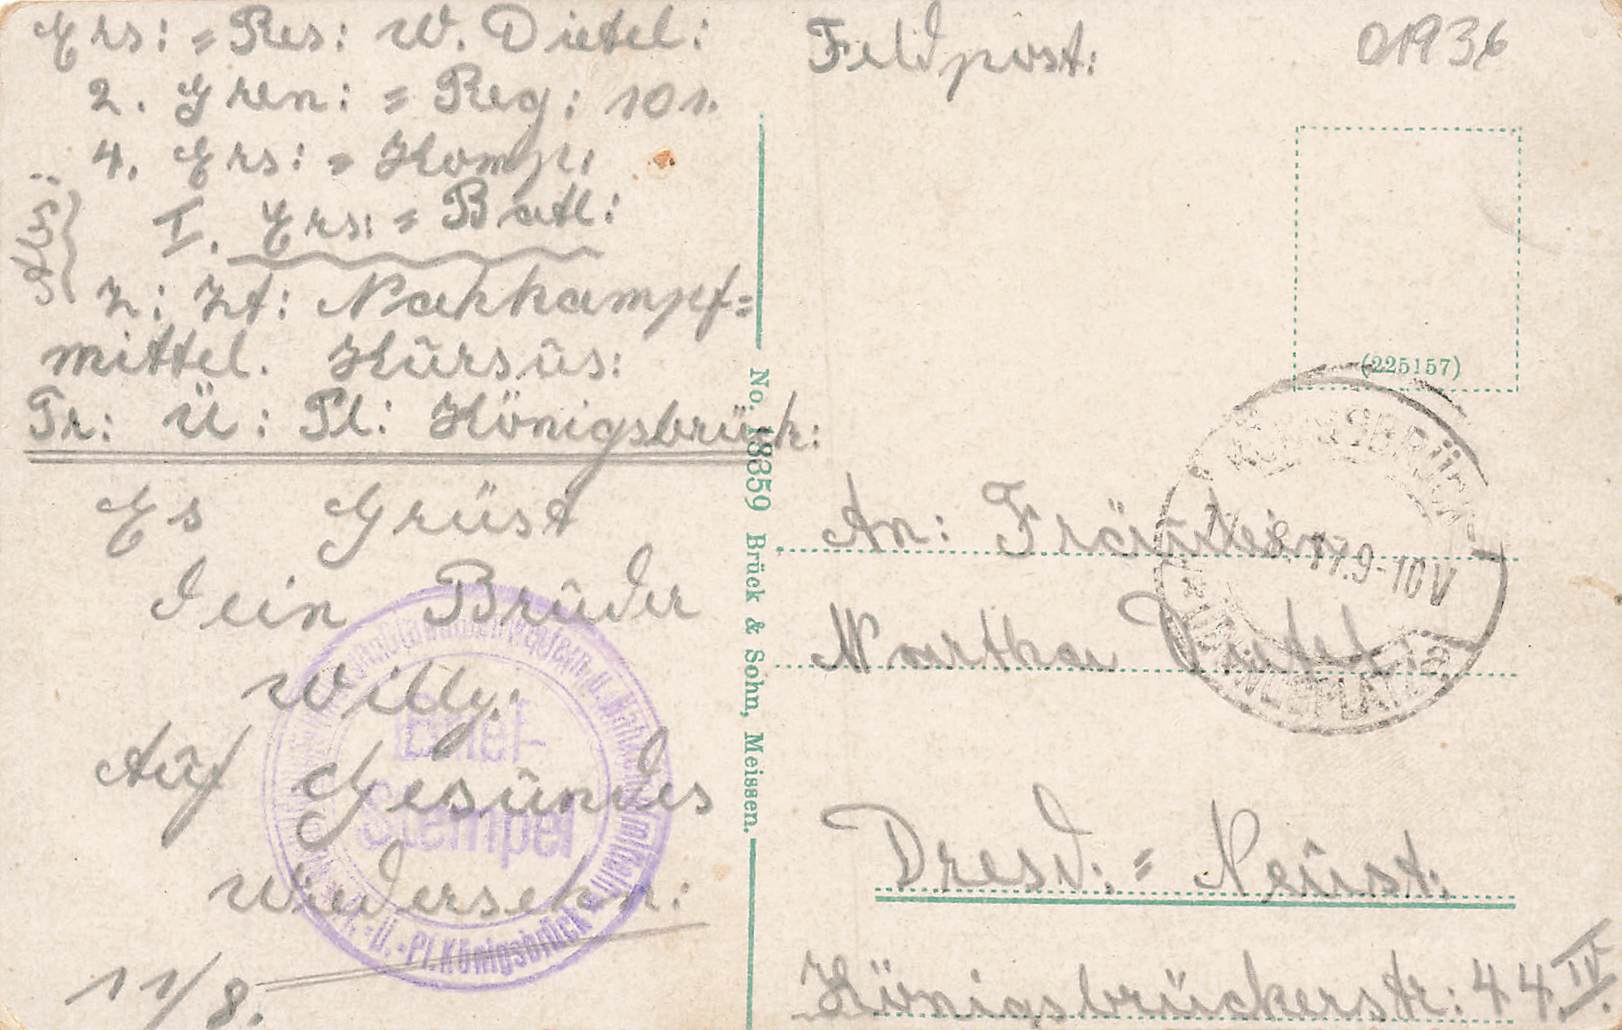 Ers: = Res: W. Dietel:
2. Gren: = Reg: 101.
4. Ers: = Komp:
I. Ers: = Batl:
z: Zt: Nahkampf=
mittel. Kursus:
Tr: Ü: Pl: Königsbrück:
Es Grüst
Dein Bruder
Willy.
Auf Gesundes
Wiedersehn:
11/8.
Brief-
Stempel
Tr.-Ü.-Pl. Königsbrück
No. 18359 Brück & Sohn, Meissen.
Feldpost:
01936
(225157)
KÖNIGSBRÜCK
8.17.9-10V
An: Fräulein
Martha Dietel:
Dresd: = Neust:
Königsbrückerstr: 44 IV.